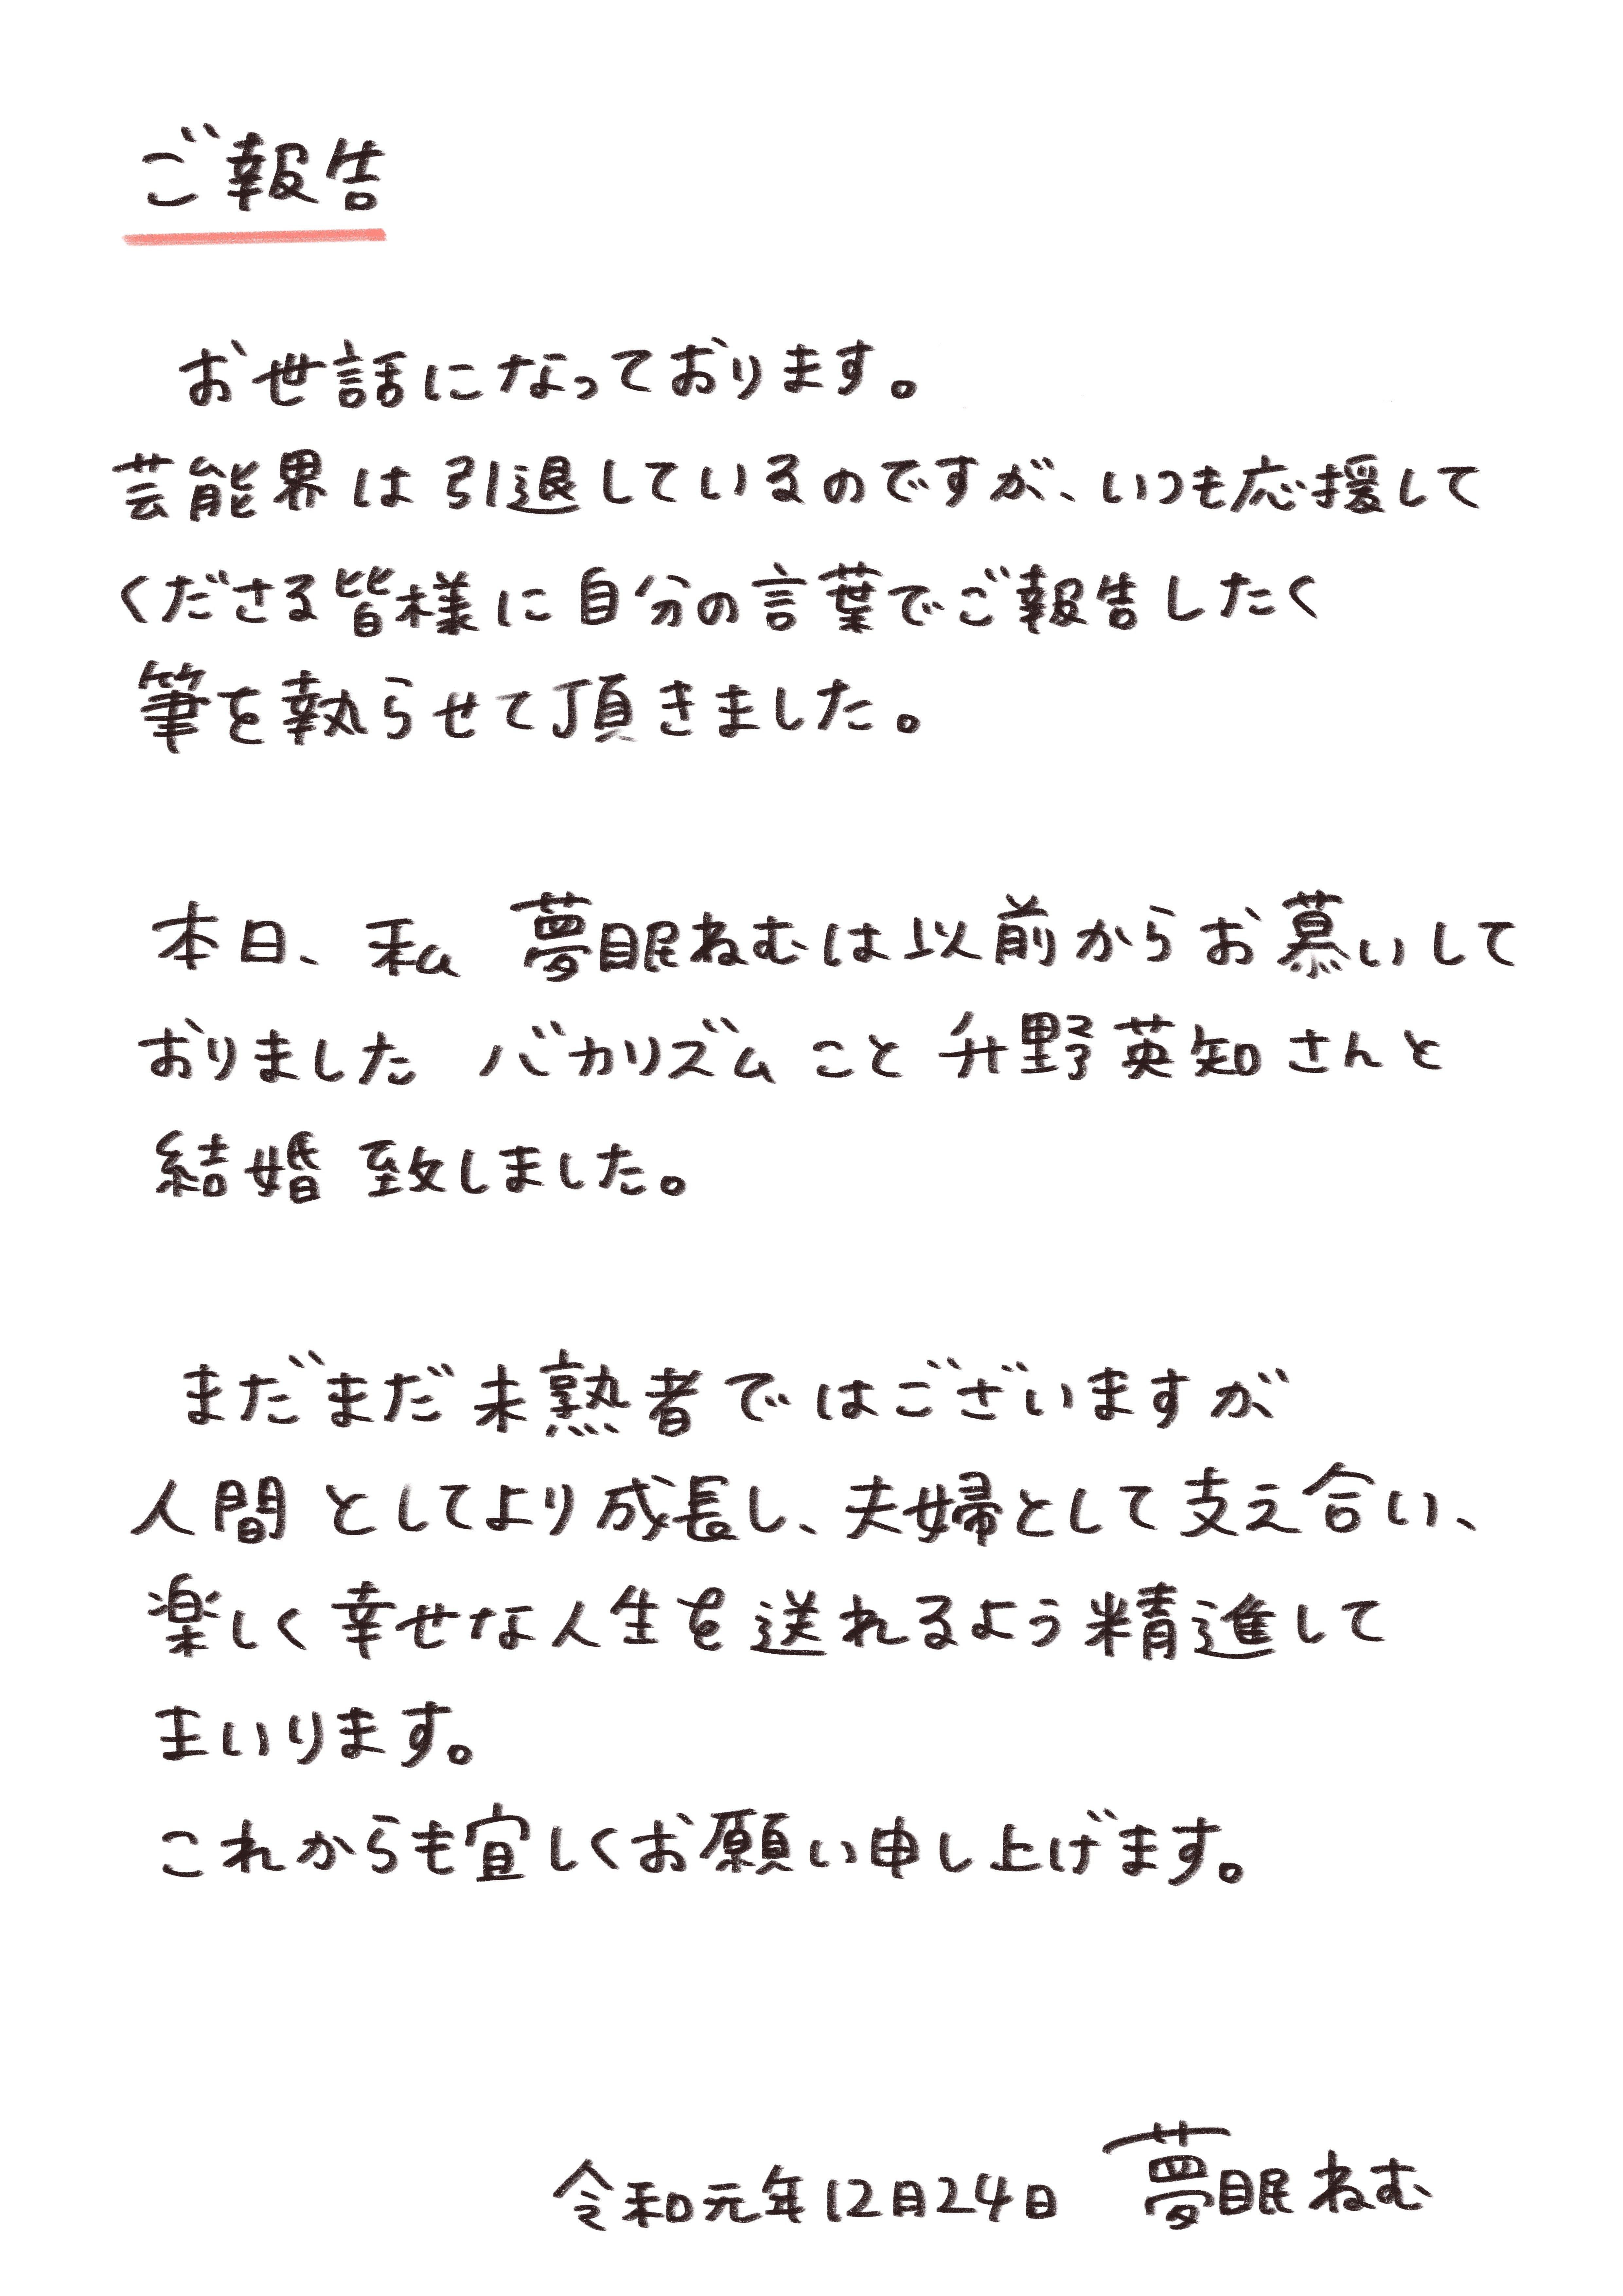 ご報告
お世話になっております。
芸能界は引退しているのですが、いつも応援して
くださる皆様に自分の言葉でご報告したく
筆を執らせて頂きました。
本日、私 夢眠ねむは以前からお慕いして
おりました バカリズムこと 升野英知さんと
結婚致しました。
まだまだ未熟者ではございますが
人間としてより成長し、夫婦として支え合い、
楽しく幸せな人生を送れるよう精進して
まいります。
これからも宜しくお願い申し上げます。
令和元年12月24日 夢眠ねむ